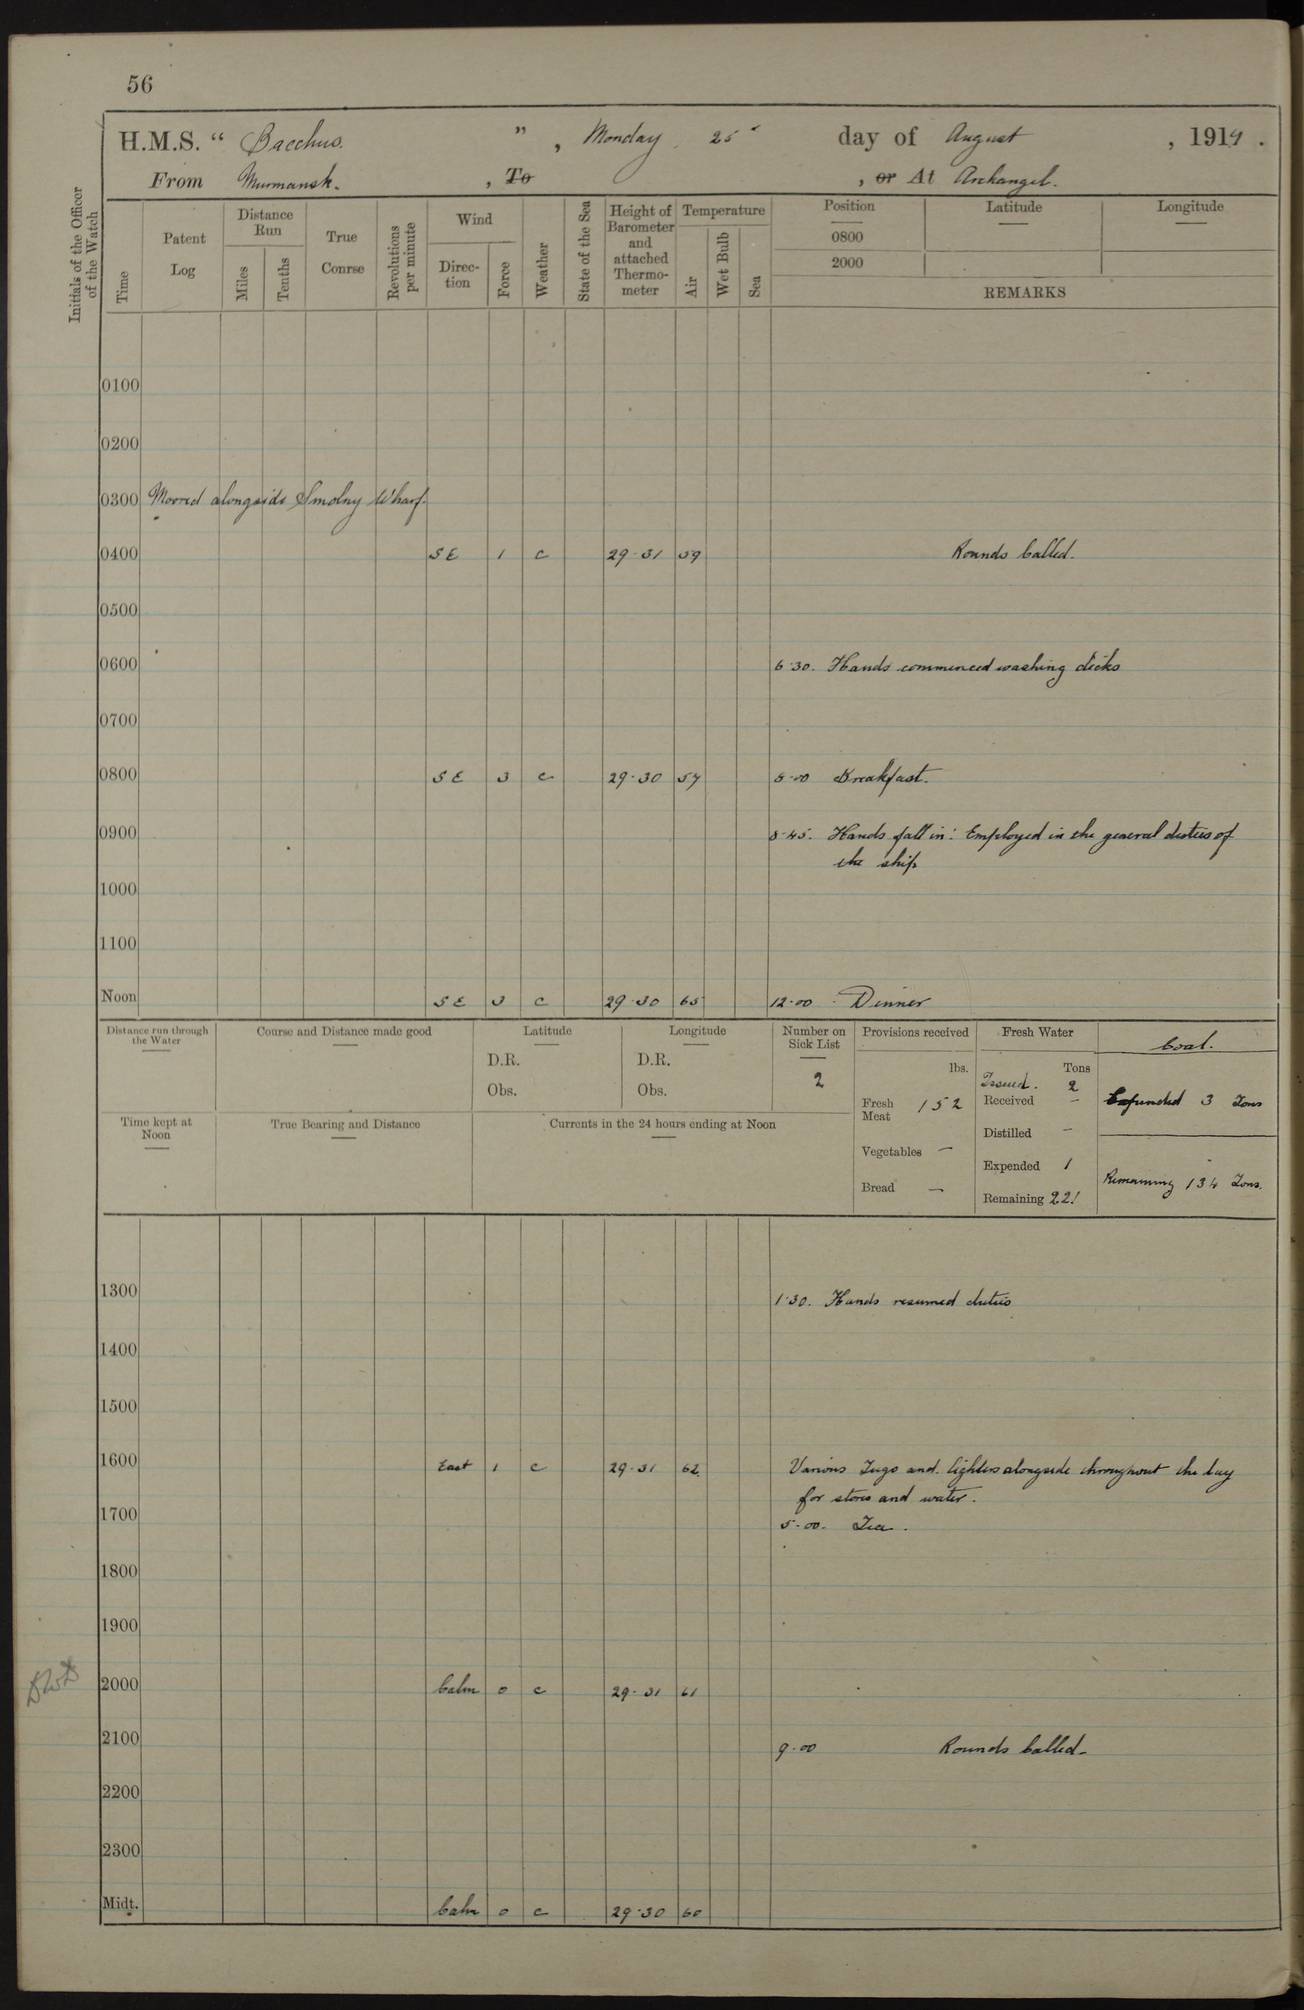 56
H.M.S. “ Bacchus. ” , Monday 25th day of August , 1919 .
From Murmansk. , To , or At Archangel.
Initials of the Officer of the Watch
Time
Patent Log
Distance Run
Miles
Tenths
True Course
Revolutions per minute
Wind
Direc-tion
Force
Weather
State of the Sea
Height of Barometer and attached Thermo-meter
Temperature
Air
Wet Bulb
Sea
Position
Latitude
Longitude
0800
2000
REMARKS
0100
0200
0300 Moored alongside Smolny Wharf.
0400 SE 1 c 29·31 59 Rounds Called.
0500
0600 6·30. Hands commenced washing decks
0700
0800 SE 3 c 29·30 57 8·00 Breakfast.
0900 8·45. Hands fall in: Employed in the general duties of
the ship
1000
1100
Noon SE 3 c 29·30 65 12·00 Dinner
Distance run through the Water
Course and Distance made good
Latitude
D.R.
Obs.
Longitude
D.R.
Obs.
Number on Sick List
2
Provisions received
lbs.
Fresh Meat 152
Vegetables —
Bread —
Fresh Water
Tons
Issued. 2
Received —
Distilled —
Expended 1
Remaining 221
Coal.
Expended 3 Tons
Remaining 134 Tons.
Time kept at Noon
True Bearing and Distance
Currents in the 24 hours ending at Noon
1300 1·30. Hands resumed duties
1400
1500
1600 East 1 c 29·31 62. Various Tugs and Lighters alongside throughout the day
for stores and water.
1700 5·00. Tea.
1800
1900
2000 Calm 0 c 29·31 61
2100 9·00 Rounds Called.
2200
2300
Midt. Calm 0 c 29·30 60